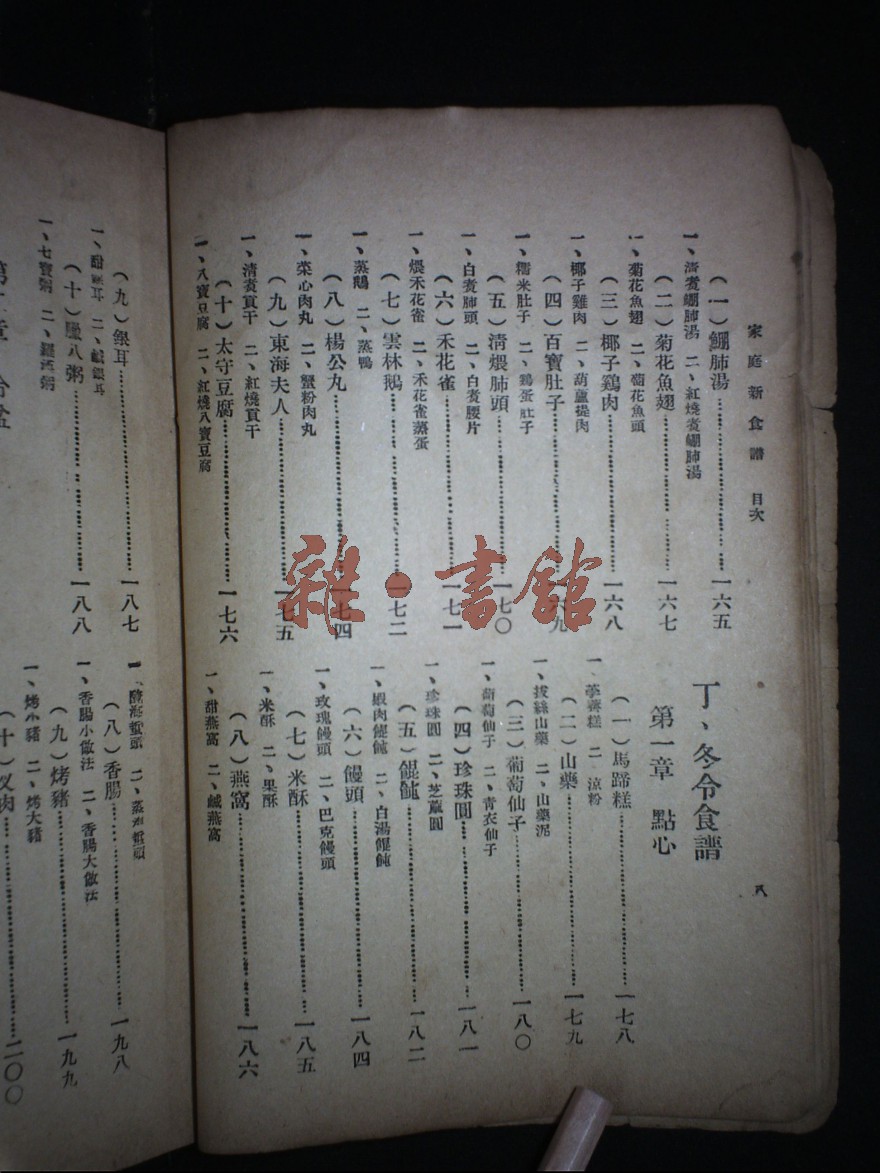 家庭新食譜 目次
八
(一)鯝肺湯……一六五
一、清煮鯝肺湯 二、紅燒煮鯝肺湯
(二)菊花魚翅……一六七
一、菊花魚翅 二、菊花魚頭
(三)椰子鷄肉……一六八
一、椰子雞肉 二、葫蘆提肉
(四)百寶肚子……一六九
一、糯米肚子 二、鷄蛋肚子
(五)清煨肺頭……一七〇
一、白煮肺頭 二、白煮腰片
(六)禾花雀……一七一
一、煨禾花雀 二、禾花雀蒸蛋
(七)雲林鵝……一七二
一、蒸鵝 二、蒸鴨
(八)楊公丸……一七四
一、菜心肉丸 二、蟹粉肉丸
(九)東海夫人……一七五
一、清煮貢干 二、紅燒貢干
(十)太守豆腐……一七六
一、八寶豆腐 二、紅燒八寶豆腐
丁、冬令食譜
第一章 點心
(一)馬蹄糕……一七八
一、荸薺糕 二、涼粉
(二)山藥……一七九
一、拔絲山藥 二、山藥泥
(三)葡萄仙子……一八〇
一、葡萄仙子 二、青衣仙子
(四)珍珠圓……一八一
一、珍珠圓 二、芝蔴圓
(五)餛飩……一八二
一、蝦肉餛飩 二、白湯餛飩
(六)饅頭……一八四
一、玫瑰饅頭 二、巴克饅頭
(七)米酥……一八五
一、米酥 二、果酥
(八)燕窩……一八六
一、甜燕窩 二、鹹燕窩
(九)銀耳……一八七
一、甜銀耳 二、鹹銀耳
(十)臘八粥……一八八
一、七寶粥
(八)香腸……一九八
一、香腸小做法 二、香腸大做法
(九)烤豬……一九九
一、烤小豬 二、烤大豬
(十)叉肉……二〇〇
雜·書館